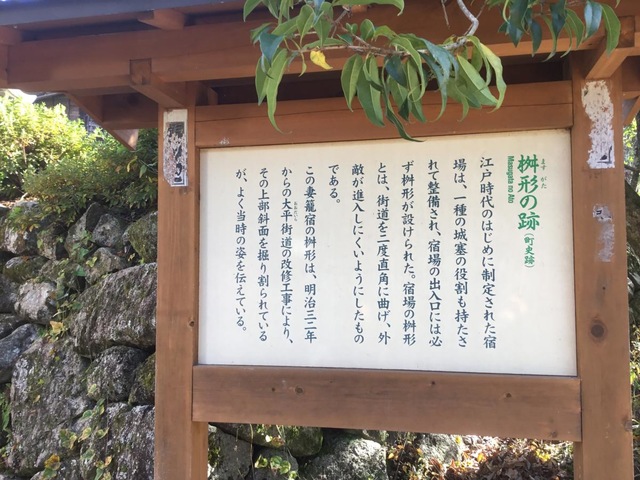 桝形の跡（町史跡）
ますがた
Masugata no Ato
江戸時代のはじめに制定された宿
場は、一種の城塞の役割も持たさ
れて整備され、宿場の出入口には必
ず桝形が設けられた。宿場の桝形
とは、街道を二度直角に曲げ、外
敵が進入しにくいようにしたもの
である。
この妻籠宿の桝形は、明治三三年
からの大平街道の改修工事により、
おおだいら
その上部斜面を掘り割られている
が、よく当時の姿を伝えている。